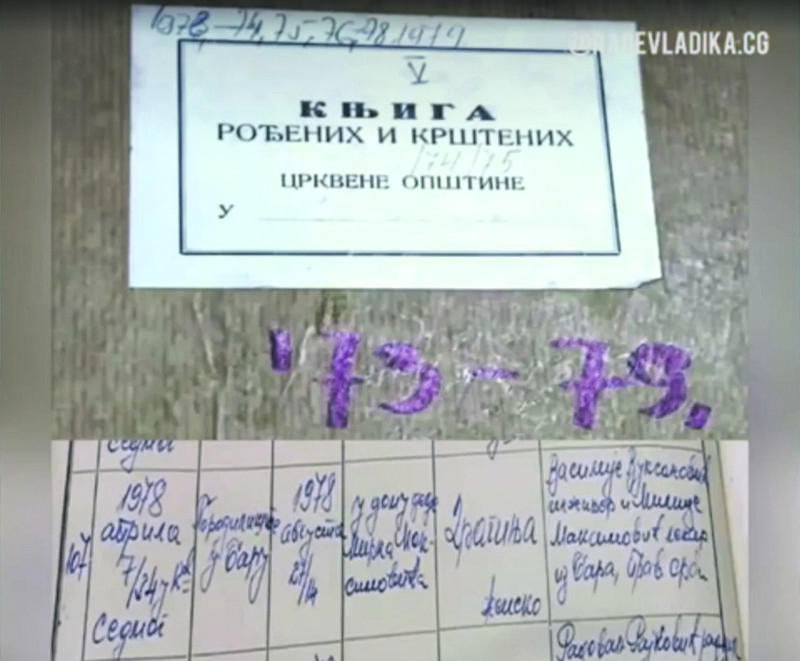 @RADEVLADIKA.CG
1973-74, 75, 76-78. 1979.
V
КЊИГА
РОЂЕНИХ И КРШТЕНИХ
/74/75
ЦРКВЕНЕ ОПШТИНЕ
У
'73-79.
Седмог
107
1978
априла
7/24 у
Седмог
Породилиште
у Бару
1978
августа
27/14
у дому деде
Мирка Мак-
симовића
Драгиња
женско
Василије Вуксановић
инжињер и Милице
Максимовић лекар
из Бара, прав. срп.
Радован Рајковић